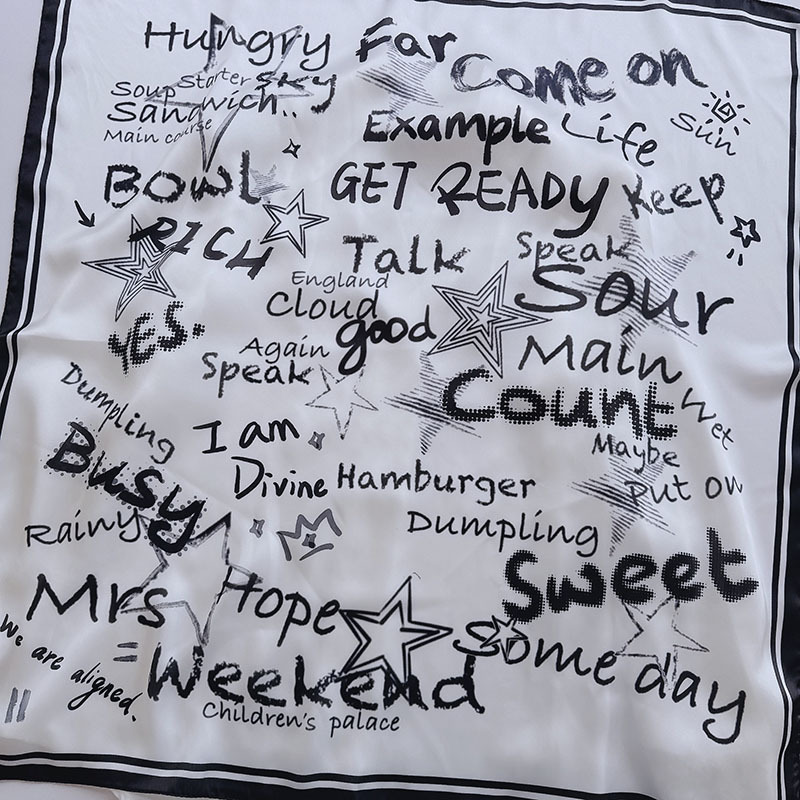 Hungry Far Come on
Soup Starter sky
Sandwich..
Main course
Example Life Sun
Bowl GET READY Keep
RICH Talk Speak
England
Cloud good Sour
YES. Again Main
Speak
Dumpling Count Wet
I am Maybe
Busy Divine Hamburger Put on
Rainy Dumpling
Sweet
Mrs Hope
We are aligned. Some day
Weekend
Children's palace